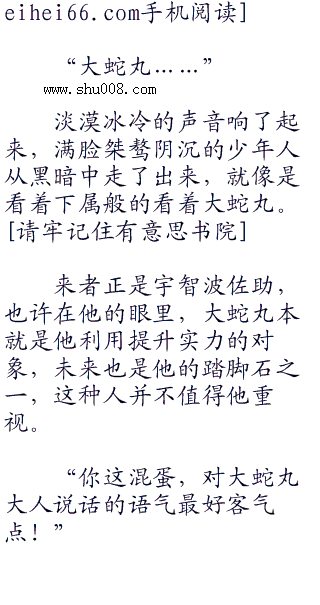 eihei66.com手机阅读]
“大蛇丸……”
www.shu008.com
淡漠冰冷的声音响了起
来，满脸桀骜阴沉的少年人
从黑暗中走了出来，就像是
看着下属般的看着大蛇丸。
[请牢记住有意思书院]
来者正是宇智波佐助，
也许在他的眼里，大蛇丸本
就是他利用提升实力的对
象，未来也是他的踏脚石之
一，这种人并不值得他重
视。
“你这混蛋，对大蛇丸
大人说话的语气最好客气
点！”